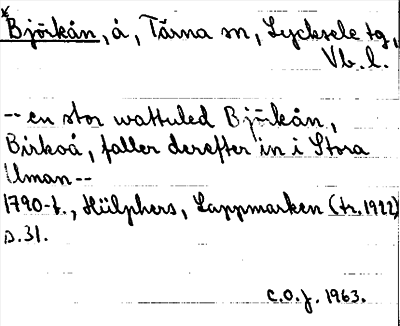 *Björkån, å, Tärna sn, Lycksele tg,
Vb. l.
-- en stor wattuled Björkån,
Birkoå, faller derefter in i Stora
Uman --
1790-t., Hülphers, Lappmarken (tr. 1922)
s. 31.
C.O.J. 1963.